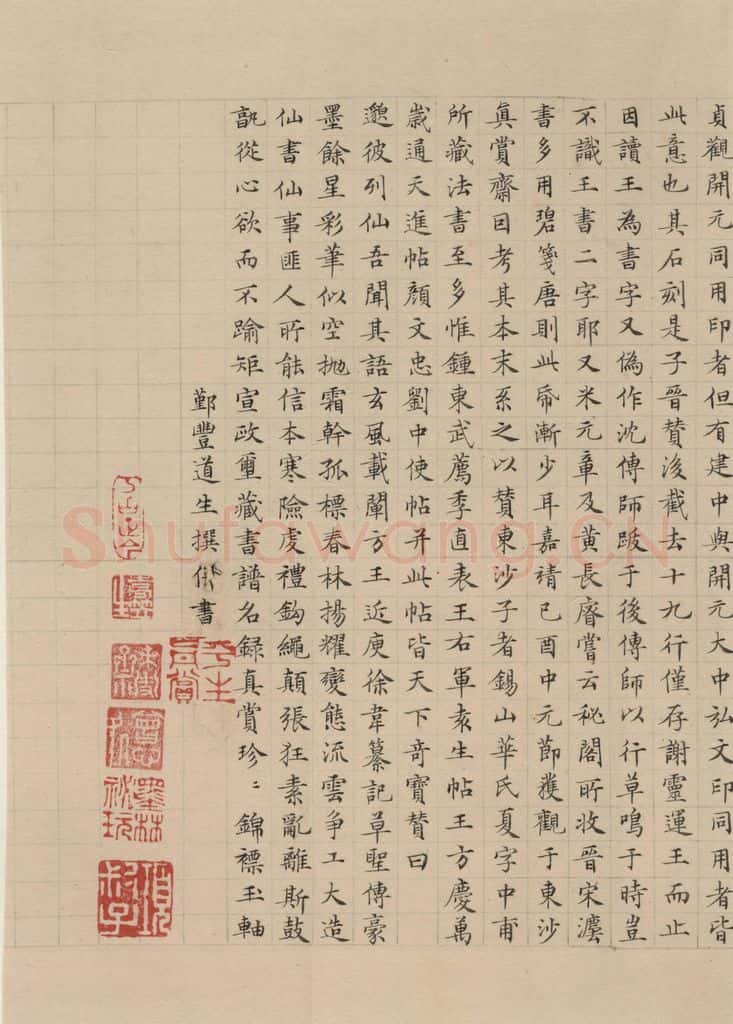 貞觀開元同用印者但有建中與開元大中弘文印同用者皆
此意也其石刻是子晉贊後截去十九行僅存謝靈運王而止
因讀王為書字又偽作沈傳師跋于後傳師以行草鳴于時豈
不識王書二字耶又米元章及黃長睿嘗云秘閣所收晉宋灋
書多用碧箋唐則此帋漸少耳嘉靖己酉中元節獲觀于東沙
眞賞齋因考其本末系之以贊東沙子者錫山華氏夏字中甫
所藏法書至多惟鍾東武薦季直表王右軍袁生帖王方慶萬
歲通天進帖顏文忠劉中使帖并此帖皆天下奇寶贊曰
邈彼列仙吾聞其語玄風載闡方王近庾徐韋纂記草聖傳豪
墨餘星彩筆似空拋霜幹孤標春林揚耀變態流雲爭工大造
仙書仙事匪人所能信本寒險虔禮鈎繩顛張狂素亂離斯鼓
翫從心欲而不踰矩宣政璽藏書譜名録真賞珍〻錦褾玉軸
鄞豐道生撰併書
平生真賞
墨林秘玩
項叔子
Shufawang.CN